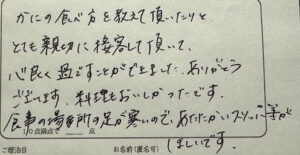 かにの食べ方を教えて頂いたりと
とても親切に接客して頂いて、
心良く過ですことができました。ありがとう
ございます。料理もおいしかったです。
食事の場所の足が寒いので、あたたかいスリッパ等が
ほしいです。
10点満点で 点
ご宿泊日 お名前(匿名可)